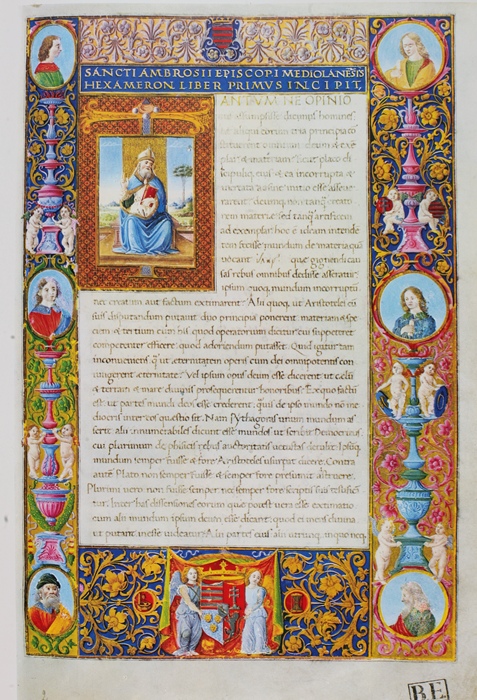 SANCTI AMBROSII EPISCOPI MEDIOLANĒSIS
HEXAMERON LIBER PRIMVS INCIPIT,
ANTVM NE OPINIO
nis assumpsisse decipias homines,
ut aliqui eorum tria principia co
stituerent omnium: deum & ex
plar & materiam: sicut plato di
scipuliq; eius: & ea incorrupta &
increata ac sine initio esse asseue
rarent: deumq; nō tanq; creato
rem materiæ: sed tanq; artificem
ad exemplar hoc ē ideam intende
tem fecisse mundum de materia: quā
uocant que gignendi cau
sas rebus omnibus dedisse asserat̄:
ipsum quoq; mundum incorruptū
nec creatum aut factum extimarent. Alii quoq; ut Aristoteles cū
suis disputandum putauit duo principia ponerent materiam & spe
ciem & tertium cum his quod operatorium dicitur: cui suppeteret
competenter efficere: quod adoriendum putasset. Quid igitur tam
inconueniens q̄ ut æternitatem operis cum dei omnipotentis con
iungerent æternitate: Vel ipsum opus deum esse dicerent: ut cælū
& terram & mare diuinis prosequerentur honoribus: Ex quo factū
est ut partes mundi deos esse crederent, quis de ipso mundo nō me
diocris inter eos questio sit. Nam Pythagoras unum mundum as
serit: alii innumerabiles dicunt esse mundos ut scribit Democritus
cui plurimum de physicis rebus auctoritatis uetustas detulit: Ipsūq;
mundum semper fuisse & fore Aristoteles usurpat dicere. Contra
autem Plato non semper fuisse & semper fore presumit astruere.
Plurimi uero non fuisse semper nec semper fore scriptis suis testifican
tur. Inter has dissensiones eorum quæ potest ueri esse extimatio
cum alii mundum ipsum deum esse dicant: quod ei mens diuina
ut putant inesse uideatur: Alii partes eius: alii utrunq; in quo nec
B.E.